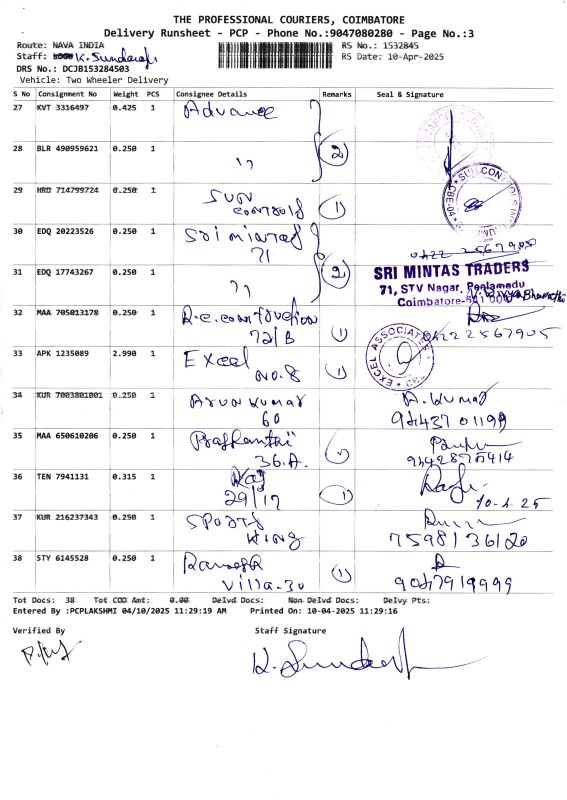 THE PROFESSIONAL COURIERS, COIMBATORE
Delivery Runsheet - PCP - Phone No.:9047080280 - Page No.:3
Route: NAVA INDIA
RS No.: 1532845
Staff: K. Sundaraj
RS Date: 10-Apr-2025
DRS No.: DCJB153284503
Vehicle: Two Wheeler Delivery
S No Consignment No Weight PCS Consignee Details Remarks Seal & Signature
27 KVT 3316497 0.425 1 Advance
28 BLR 490959621 0.250 1 " 2
29 HRD 714799724 0.250 1 SUN controls 1
SUN CONTROLS
CBE-04
30 EDQ 20223526 0.250 1 Sri mintas
71
0422 2567905
31 EDQ 17743267 0.250 1 " 2
SRI MINTAS TRADERS
71, STV Nagar, Peelamedu
Coimbatore-641 004
32 MAA 705013178 0.250 1 R.e. construction
72/B 1
0422 2567905
33 APK 1235089 2.990 1 Excel
No.8 1
EXCEL ASSOCIATES
34 KUR 7003801001 0.250 1 Arun kumar
60
A. kumar
94437 01199
35 MAA 650610206 0.250 1 Prashanthi
36.A.
9442875414
36 TEN 7941131 0.315 1 Raj
29/17 1
10-4-25
37 KUR 216237343 0.250 1 Sports
King
7598136120
38 STY 6145528 0.250 1
Villa-30 1
9047919999
Tot Docs: 38 Tot COD Amt: 0.00 Delvd Docs: Non Delvd Docs: Delvy Pts:
Entered By :PCPLAKSHMI 04/10/2025 11:29:19 AM Printed On: 10-04-2025 11:29:16
Verified By
Staff Signature
K. Sundaraj